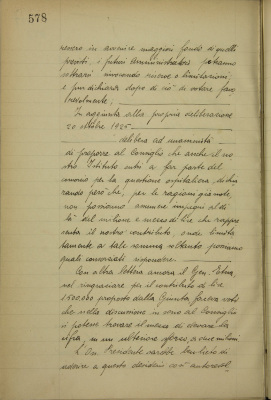 578
vessero in avvenire maggiori fondi di quelli
previsti, i futuri Amministratori potranno
sottrarsi invocando riserve o limitazioni,
e pur dichiara dopo di ciò di votare favo
revolmente;
In aggiunta alla propria deliberazione
20 ottobre 1925
delibera ad unanimità
di proporre al Consiglio che anche il no
stro Istituto entri a far parte del
consorzio per la questione ospitaliera, dichia
rando però che, per le ragioni già note,
non possiamo assumere impegni al di
là del milione e mezzo di lire che rappre
senta il nostro contributo, onde limita
tamente a tale somma soltanto possiamo
quali consorziati rispondere.
Con altra lettera ancora il Gen.
nel ringraziare per il contributo di lire
1.500.000 proposto dalla Giunta, faceva voti
che nella discussione in seno al Consiglio
si potesse trovare il mezzo di elevare la
cifra, in un ulteriore sforzo, a due milioni.
L'On. Presidente sarebbe ben lieto di
aderire a questo desiderio così autorevol